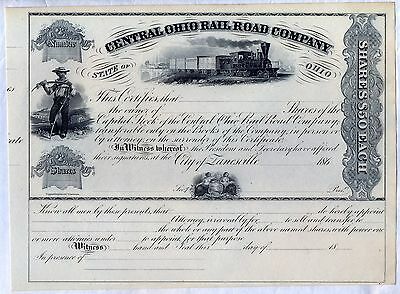 CENTRAL OHIO RAIL ROAD COMPANY
STATE OF OHIO
Shares
SHARES $50 EACH
This Certifies, that
the owner of Shares of the
Capital Stock of the Central Ohio Rail Road Company;
transferable only on the Books of the Company, in person or
by Attorney, on the surrender of this Certificate.
In Witness whereof, the President and Secretary have affixed
their signatures, at the City of Zanesville 186
Shares
Secy. Pres.
Know all men by these presents, that do hereby appoint
Attorney, irrevocably for to sell and transfer to
the whole or any part of the above named shares, with power one
or more attornies under to appoint for that purpose
Witness hand and Seal this day of 18
In presence of